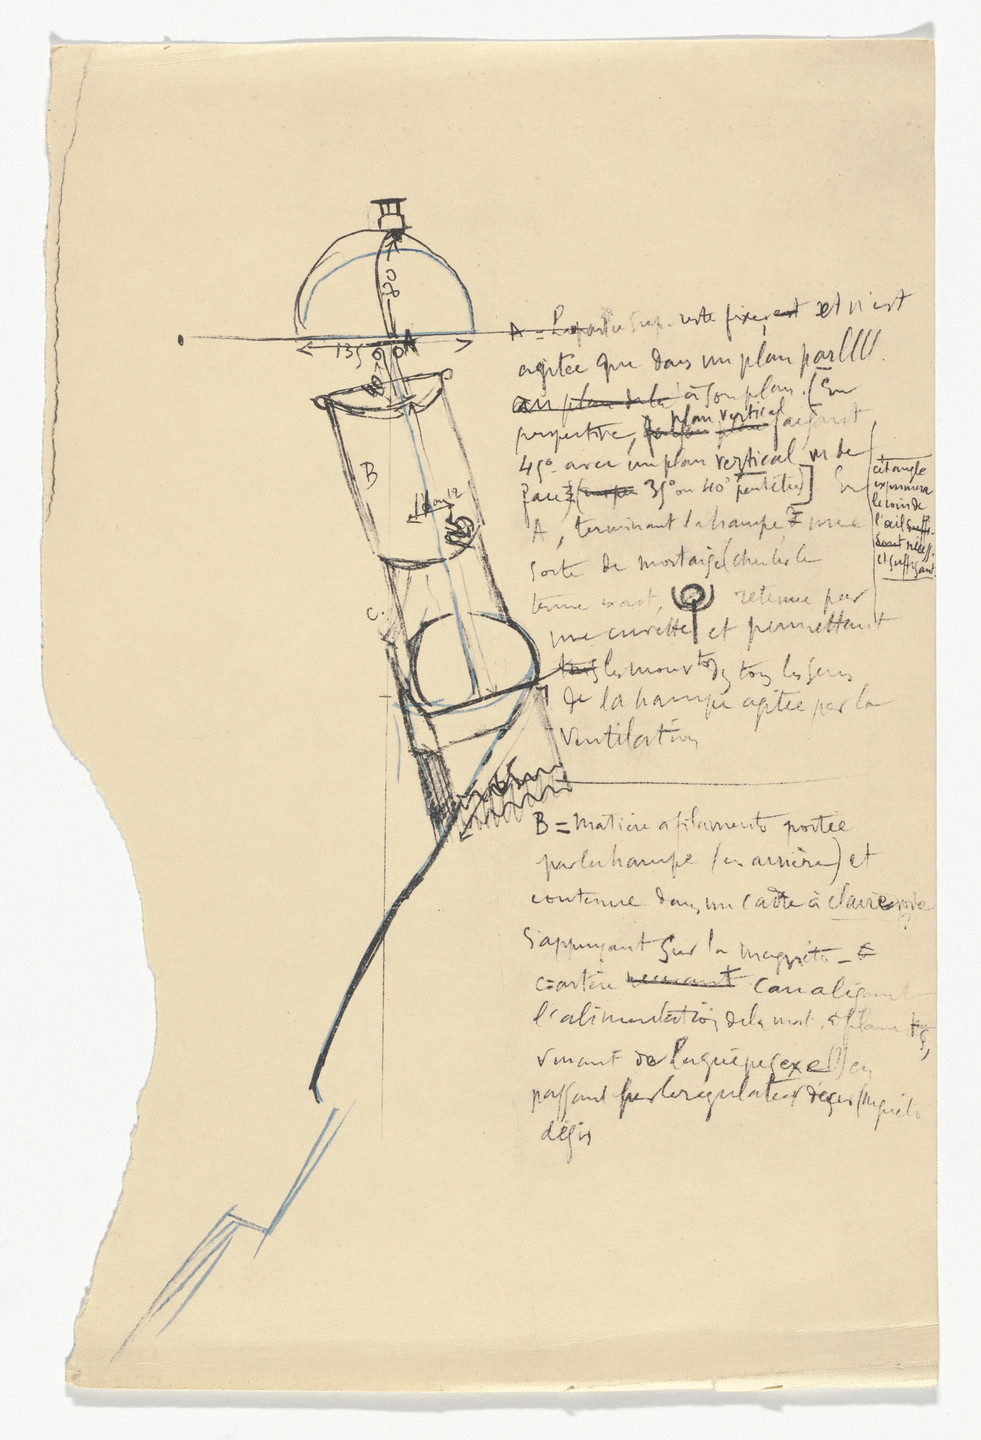 80
A
135
40
B
10 ou 12
C.
A = La partie Sup. reste fixe, est et n'est
agitée que dans un plan parllll.
au plan de la à son plan. (En
perspective, plan vertical faisant
45° avec un plan vertical vu de
face) 35° ou 40° peut être] En
A, terminant la hampe, une
sorte de mortaise (chercher le
terme exact, retenue par
une cuvette et permettant
tous les mouvts ds tous les sens
de la hampe agitée par la
ventilation
cet angle
exprimera
le coin de
l'œil
nécess.
et suffisant
B = Matière à filaments portée
par la hampe (en arrière) et
contenue dans un cadre à claire voie
S'appuyant sur la magnéto - C
C = artère canalisant
l'alimentation de la mat. à filaments,
venant de la guêpe (sexe) en
passant par le régulateur
dégis